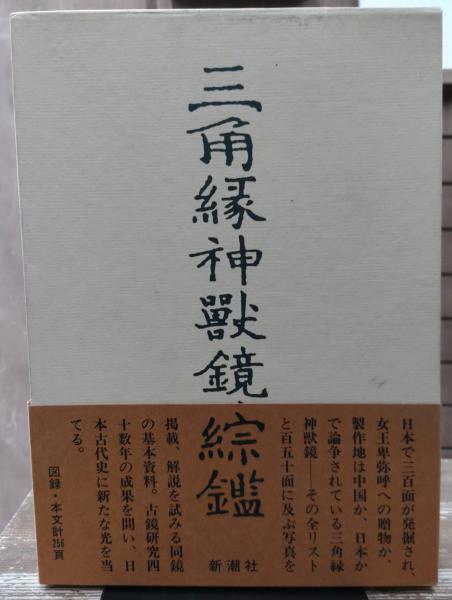 三角縁神獸鏡・綜鑑
日本で三百面が発掘され、
女王卑弥呼への贈物か、
製作地は中国か、日本か
で論争されている三角縁
神獣鏡——その全リスト
と百五十面に及ぶ写真を
掲載、解説を試みる同鏡
の基本資料。古鏡研究四
十数年の成果を問い、日
本古代史に新たな光を当
てる。
図録・本文計256頁
新潮社